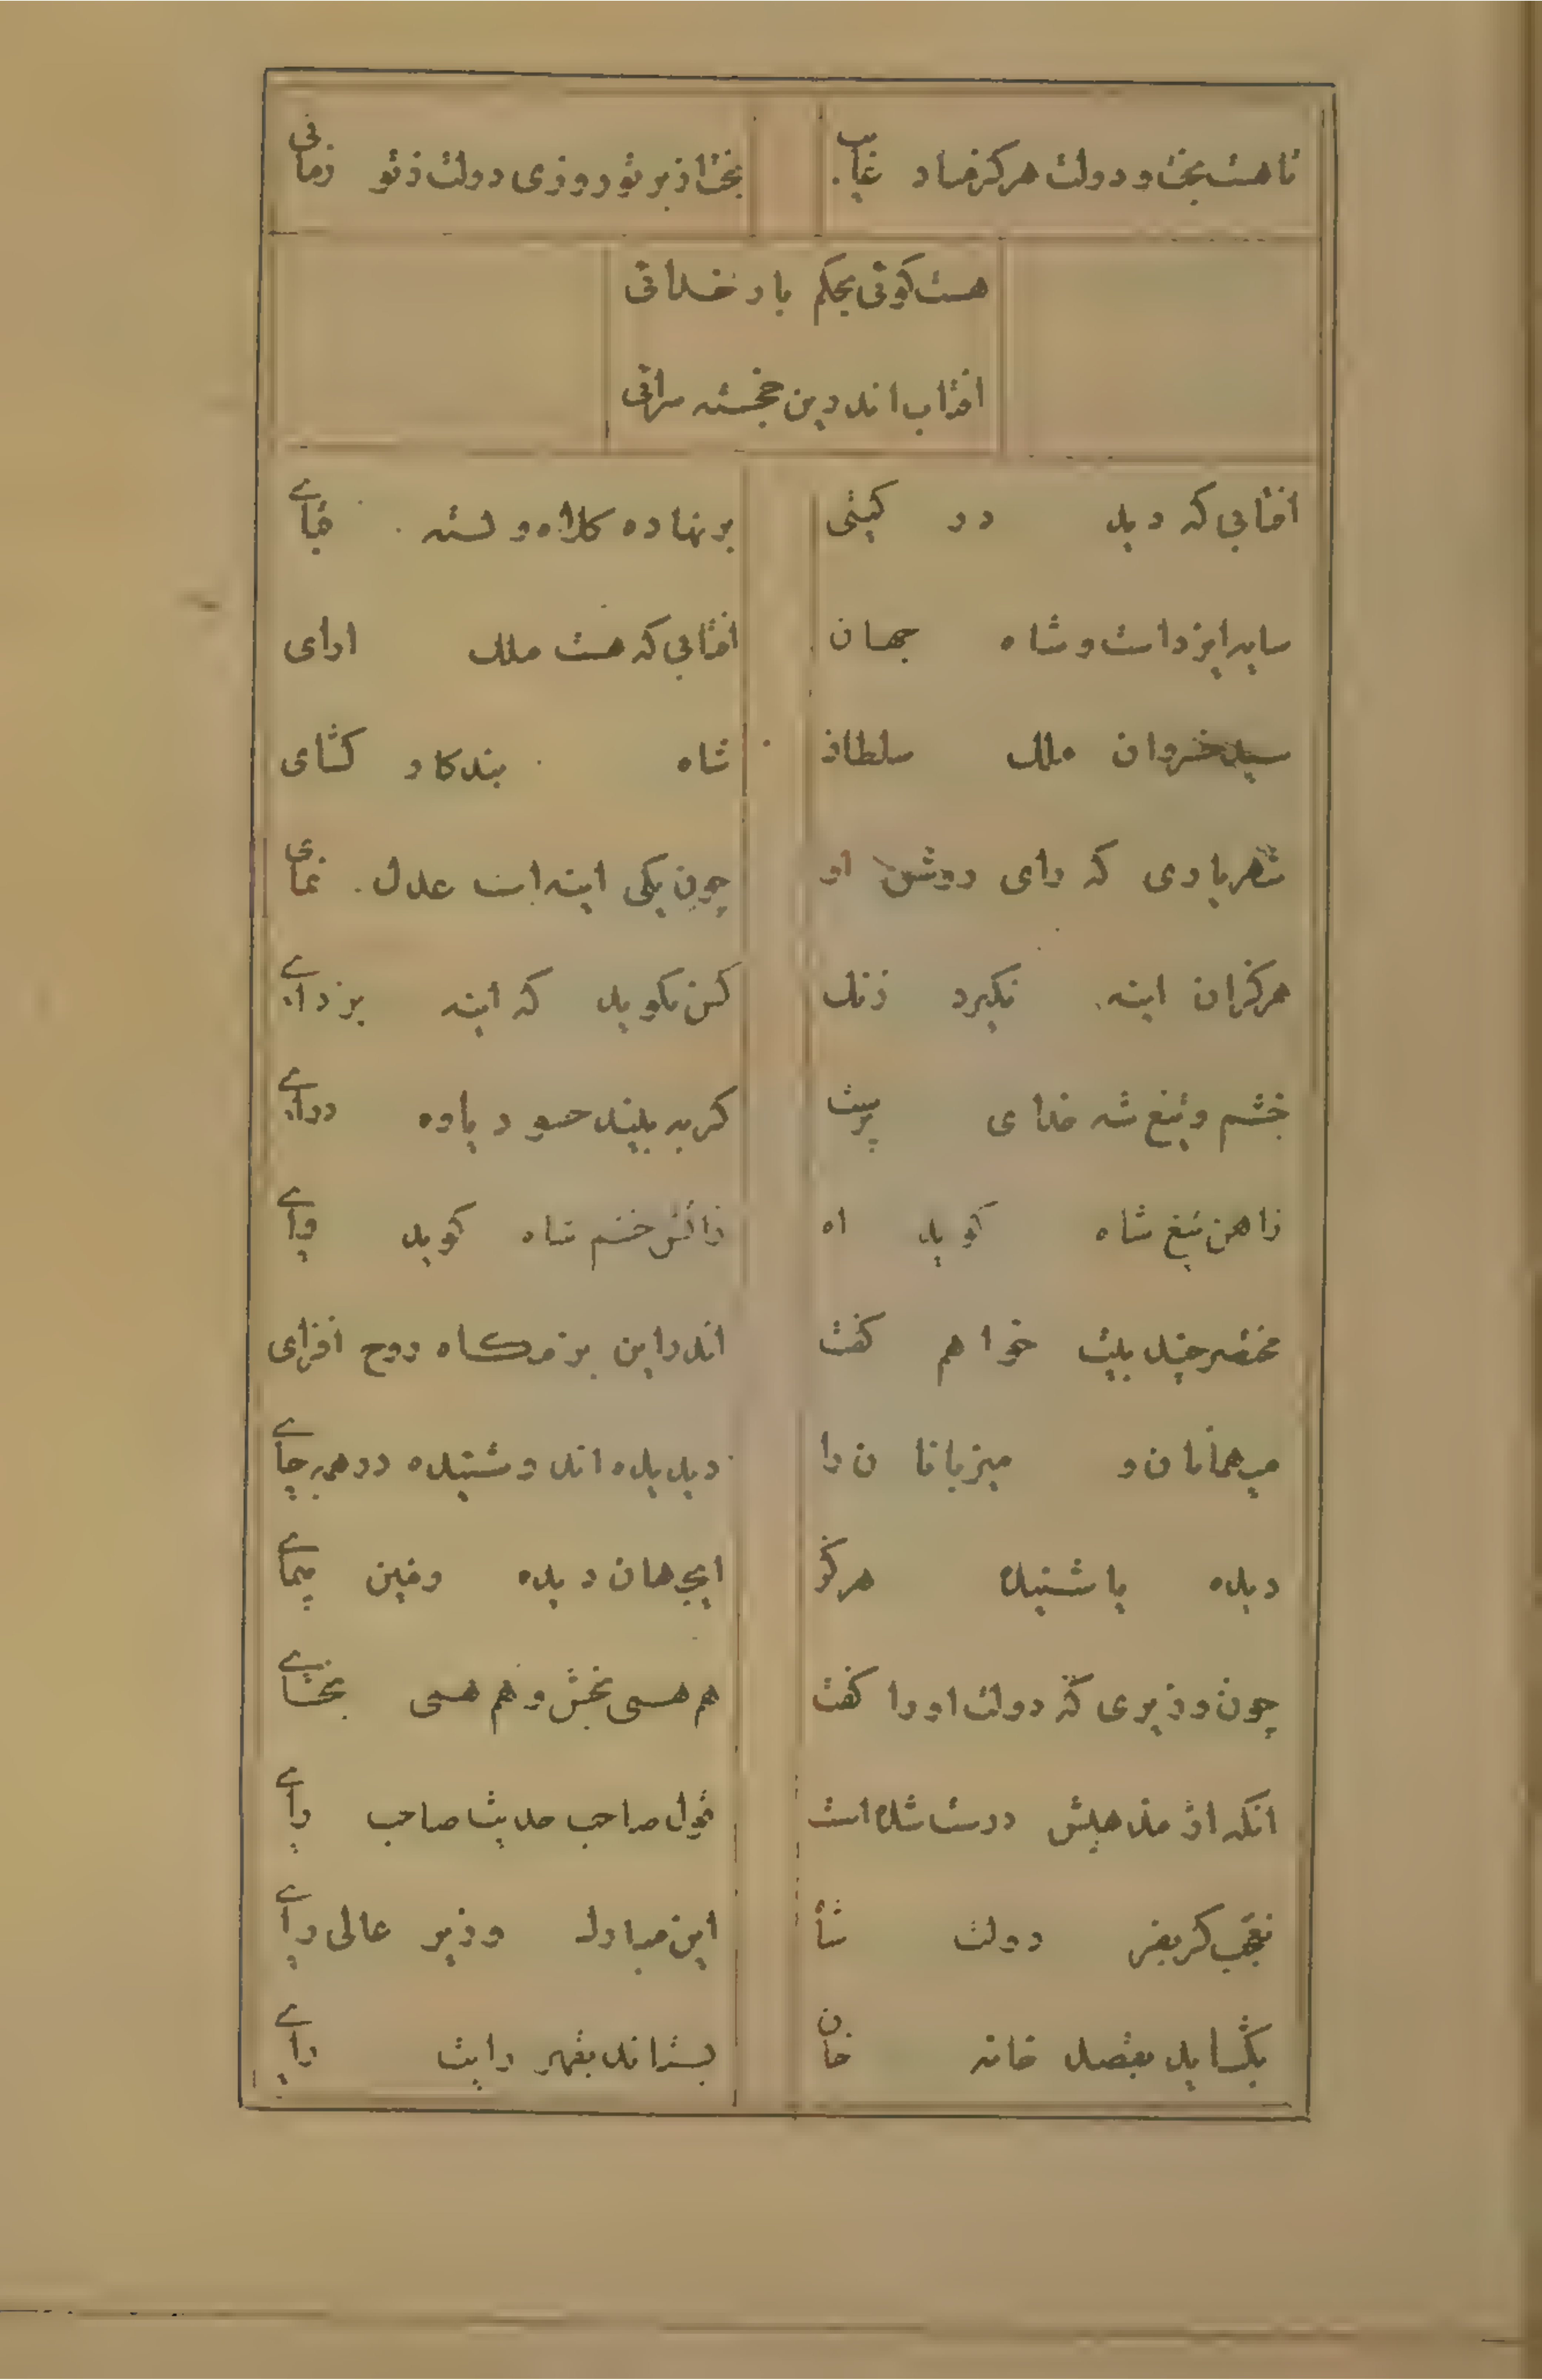 تا هست بخت و دولت هرکز مباد غایب بخت از بر تو روزی دولت ز تو زمانی
هست کوئی بحکم بار خدائی
افتاب اندرین خجسته سرائی
افتابی که دید در کیتی بر نهاده کلاه و بسته قبای
سایه ایزداست و شاه جهان افتابی که هست ملک ارای
سید خسروان ملک سلطان شاه بند کار کشای
شهریاری که رای روشن او چون یکی اینه است عدل نمای
هرکز ان اینه نکیرد زنک کس نکوید که اینه بزدای
خشم و تیغ شه خدای پرست کر به بیند حسود یاوه درای
زاهن تیغ شاه کوید اه زاتش خشم شاه کوید وای
مختصر چند بیت خواهم کفت اندر این بزمکاه روح افزای
میهمانان و میزبانان را دیدیده اند و شنیده در همه جای
دیده یا شنیده هرکز این جهان دیده و زمین پیمای
چون وزیری که دولت او را کفت هم همی بخش و هم همی بخشای
انکه از مذهبش درست شده است قول صاحب حدیث صاحب رای
نعجب کر بفر دولت شأ این مبارک وزیر عالی رای
بکشاید بقصد خانه خان بستاند بقهر رایت رای